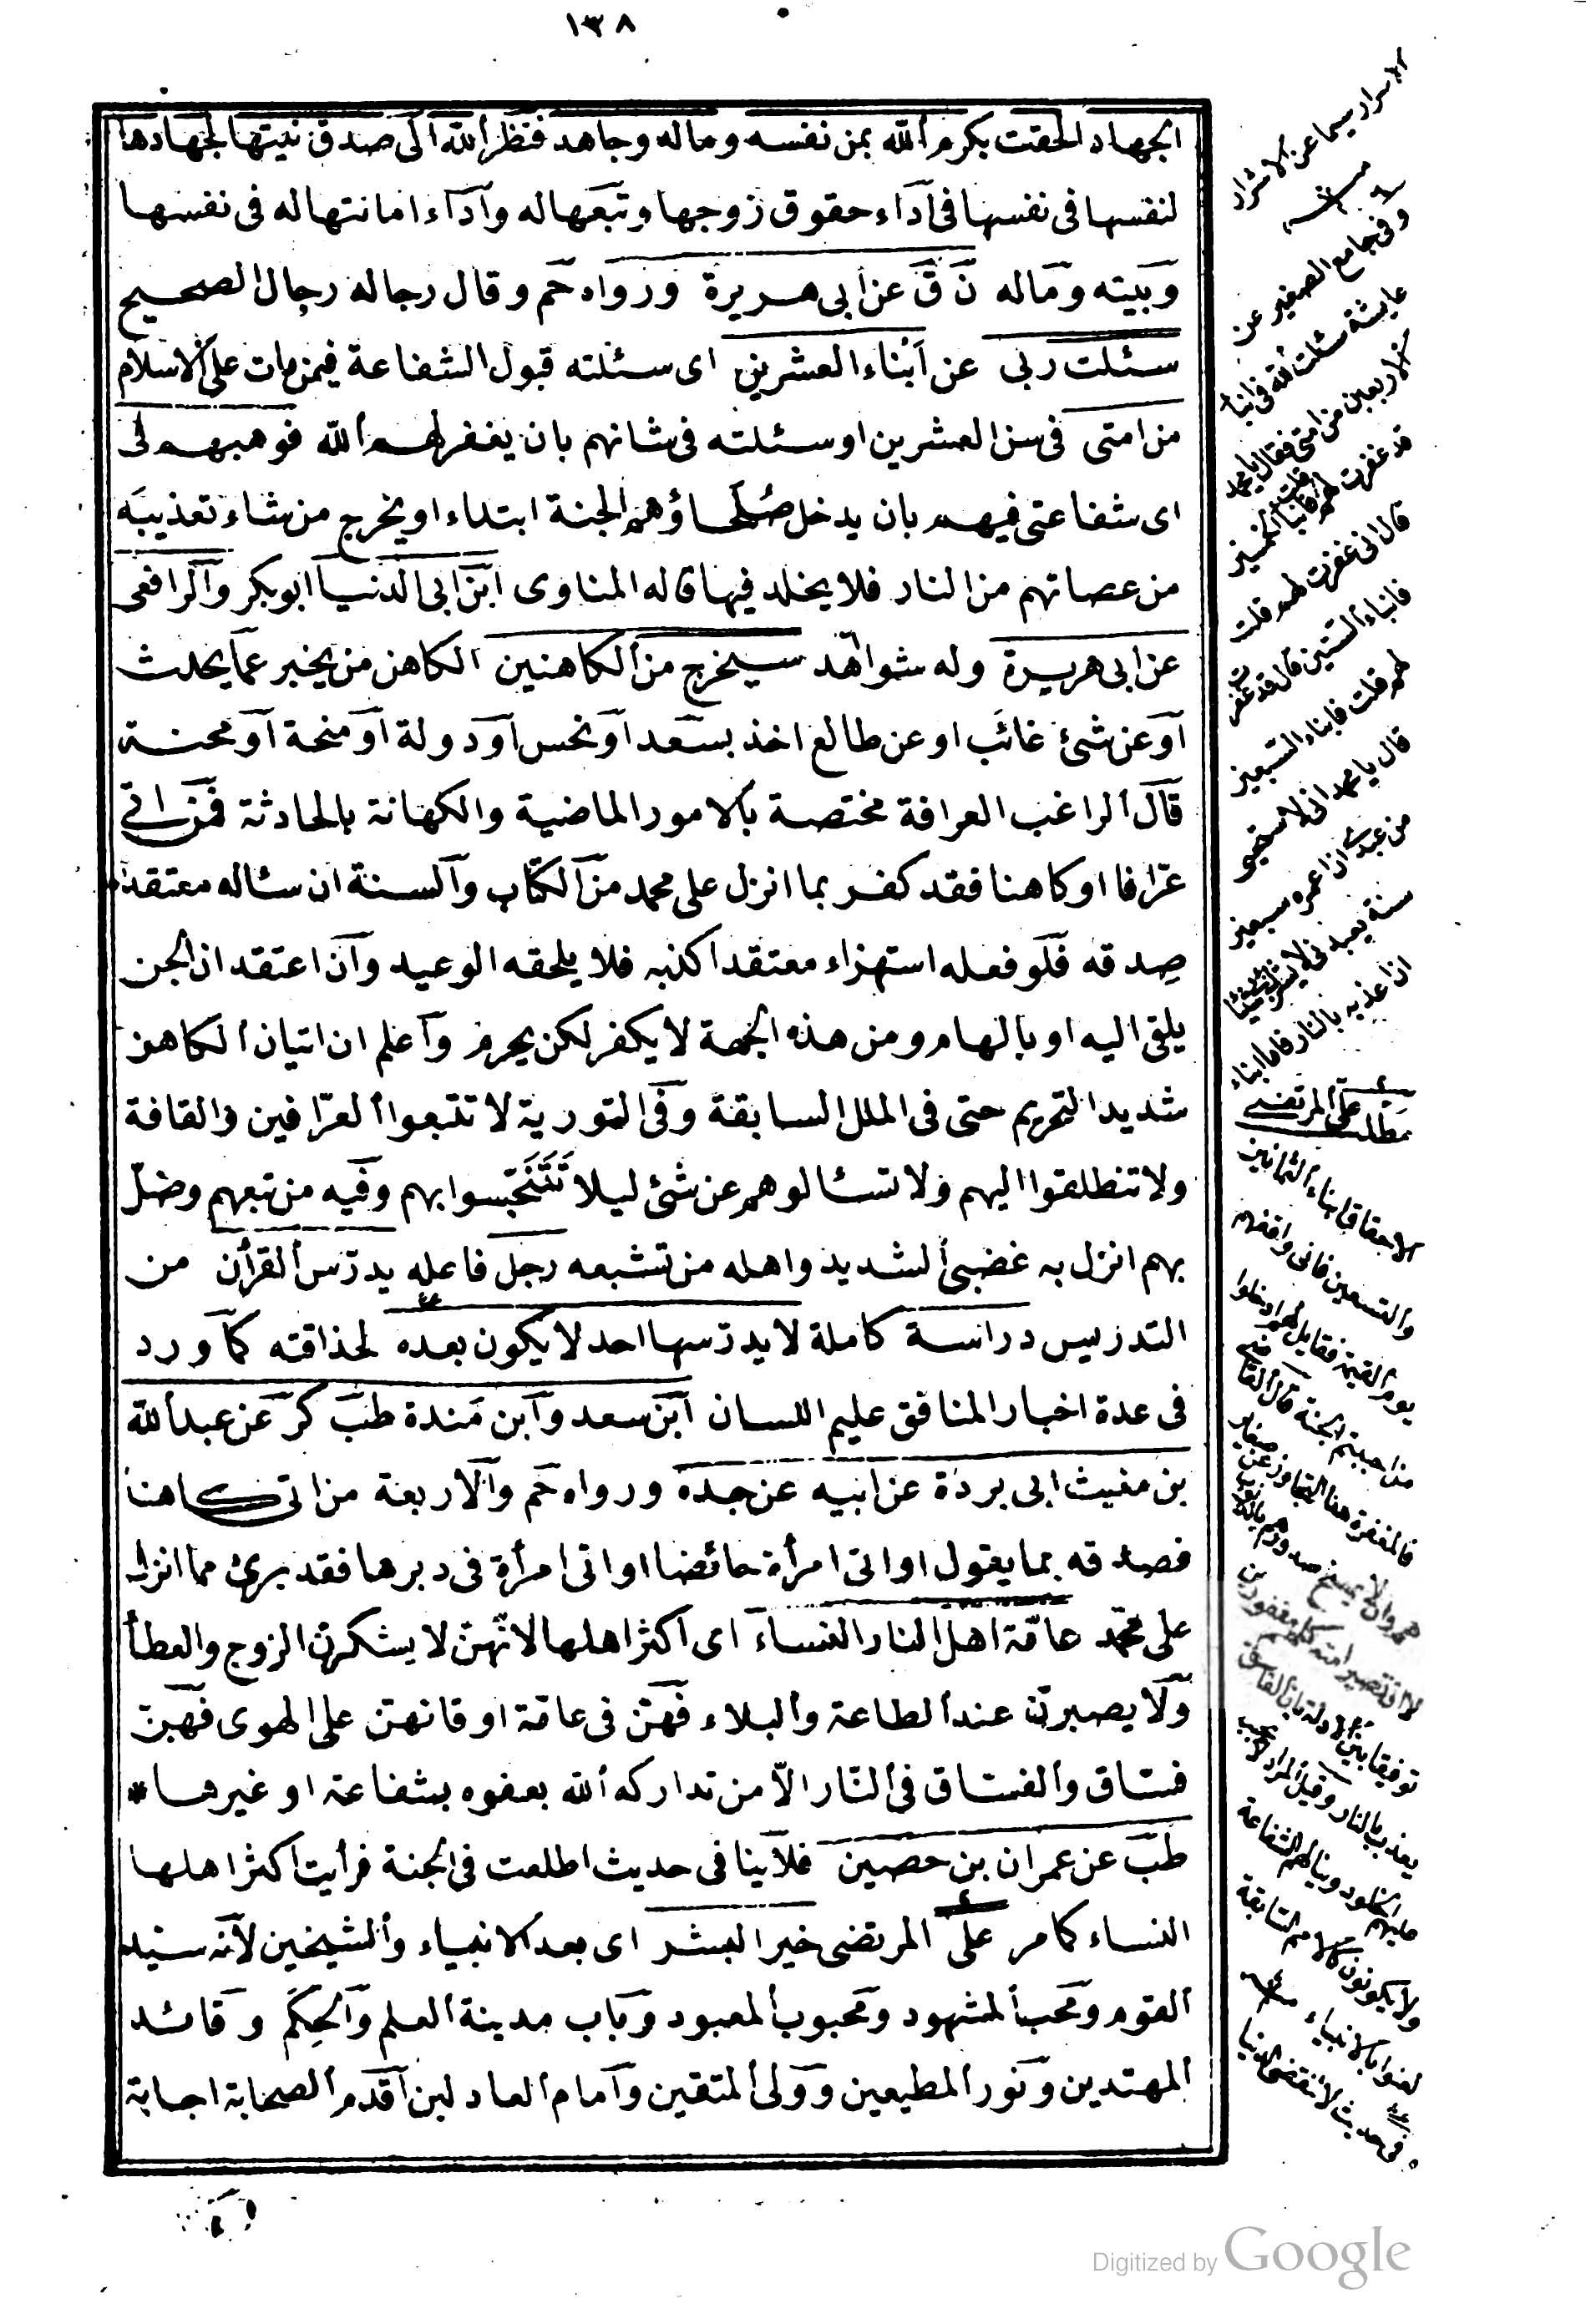 ١٣٨
الجهاد الحقت بكرم الله بمن نفسه وماله وجاهد فنظر الله الى صدق نيتها لجهادها
لنفسها فى نفسها فى اداء حقوق زوجها وتبعها له وآداء امانتها له فى نفسها
وبيته وماله ن ق عن ابى هريرة ورواه حم وقال رجاله رجال الصحيح
سئلت ربى عن ابناء العشرين اى سئلته قبول الشفاعة فيمن مات على الاسلام
من امتى فى سن العشرين او سئلته فى شانهم بان يغفر لهم الله فوهبهم لى
اى شفاعتى فيهم بان يدخل صُلَحاؤهم الجنة ابتداء او يخرج من شاء تعذيبه
من عصاتهم من النار فلا يخلد فيها قاله المناوى ابن ابى الدنيا ابو بكر والرافعى
عن ابى هريرة وله شواهد سيخرج من الكاهنين الكاهن من يخبر عما يحدث
او عن شئ غائب او عن طالع اخذ بسعد او نحس او دولة او منحة او محنة
قال الراغب العرافة مختصة بالامور الماضية والكهانة بالحادثة فمن اتى
عرّافا او كاهنا فقد كفر بما انزل على محمد من الكتاب والسنة ان سئاله معتقدا
صدقه فلو فعله استهزاء معتقدا كذبه فلا يلحقه الوعيد وان اعتقد ان الجن
يلقى اليه او بالهام ومن هذه الجهة لا يكفر لكن يحرم واعلم ان اتيان الكاهن
شديد التحريم حتى فى الملل السابقة وفى التورية لا تتبعوا العرّافين والقافة
ولا تنطلقوا اليهم ولا تسئالوهم عن شئ ليلا تَتَنَجّسوا بهم وفيه من تبعهم وضلّ
بهم انزل به غضبى الشديد واهله من تشبعه رجل فاعله يدرّس القرأن من
التدريس دراسة كاملة لا يدرّسها احد لا يكون بعده لحذاقته كما ورد
فى عدة اخبار المنافق عليم اللسان ابن سعد وابن مَندة طب كر عن عبد الله
بن مغيث ابى بردة عن ابيه عن جده ورواه حم والاربعة من اتى كاهنا
فصدقه بما يقول او اتى امرأة حائضا او اتى امرأة فى دبرها فقد برئ مما انزل
على محمّد عامّة اهل النار النساء اى اكثر اهلها لانّهنّ لا يشكرن الزوج والعطأ
ولا يصبرن عند الطاعة والبلاء فهنّ فى عامّة اوقاتهنّ على الهوى فهنّ
فسّاق والفسّاق فى النّار الاّ من تداركه الله بعفوه بشفاعة او غيرها *
طب عن عمران بن حصين فلاينا فى حديث اطلعت فى الجنة فرأيت اكثر اهلها
النساء كما مر علىّ المرتضى خير البشر اى بعد الانبياء والشيخين لانه سيد
القوم ومحب المشهود ومحبوب المعبود وباب مدينة العلم والحِكَم وقائد
المهتدين ونور المطيعين وولى المتقين وامام العادلين اقدم الصحابة اجابة
الاسرار سيما عن الاشرار
وفى جامع الصغير عن
عايشة سئلت الله فى ابناء
الاربعين من امتى فقال يا محمد
قد غفرت لهم قلت فابناء الخمسين
قال انى غفرت لهم قلت
فابناء الستين قال قد غفرت
لهم قلت فابناء السبعين
قال يا محمد انى لاستحيى
من عبدى ان اعمره سبعين
سنة يعبدنى لا يشرك بى شيئا
ان اعذبه بالنار فاما ابناء
مطلب على المرتضى
الاحقاب ابناء الثمانين
والتسعين فانى واقفهم
يوم القيمة فقايل لهم ادخلوا
من احببتم الجنة قال القاضى
فالمغفرة هنا التجاوز عن صغاير
توفيقا بين الادلة
يعذب بالنار وقيل المراد
عليهم الخلود وينالهم الشفاعة
ولا يكونون كالامم السابقة
لعنوا بالانبياء
فى حديث لا تنقضى الدنيا
Digitized by Google